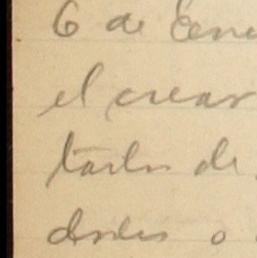 6 de Ene
el crear
tarlos de
dades o